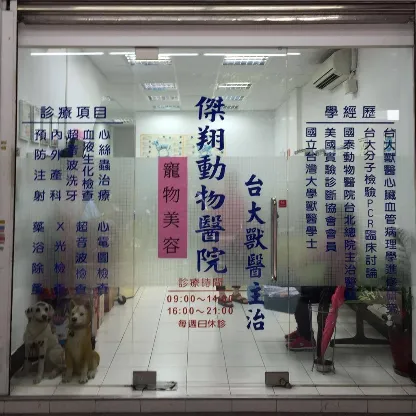 診療項目
心絲蟲治療 心電圖檢查
血液生化檢查 超音波檢查
超音波洗牙 X光檢查
內外產科
預防注射 藥浴除蚤
寵物美容
傑翔動物醫院
台大獸醫主治
診療時間
09:00～14:00
16:00～21:00
每週日休診
學經歷
台大獸醫心臟血管病理學進修
台大分子檢驗PCR臨床討論
國泰動物醫院台北總院主治醫
美國實驗診斷協會會員
國立台灣大學獸醫學士